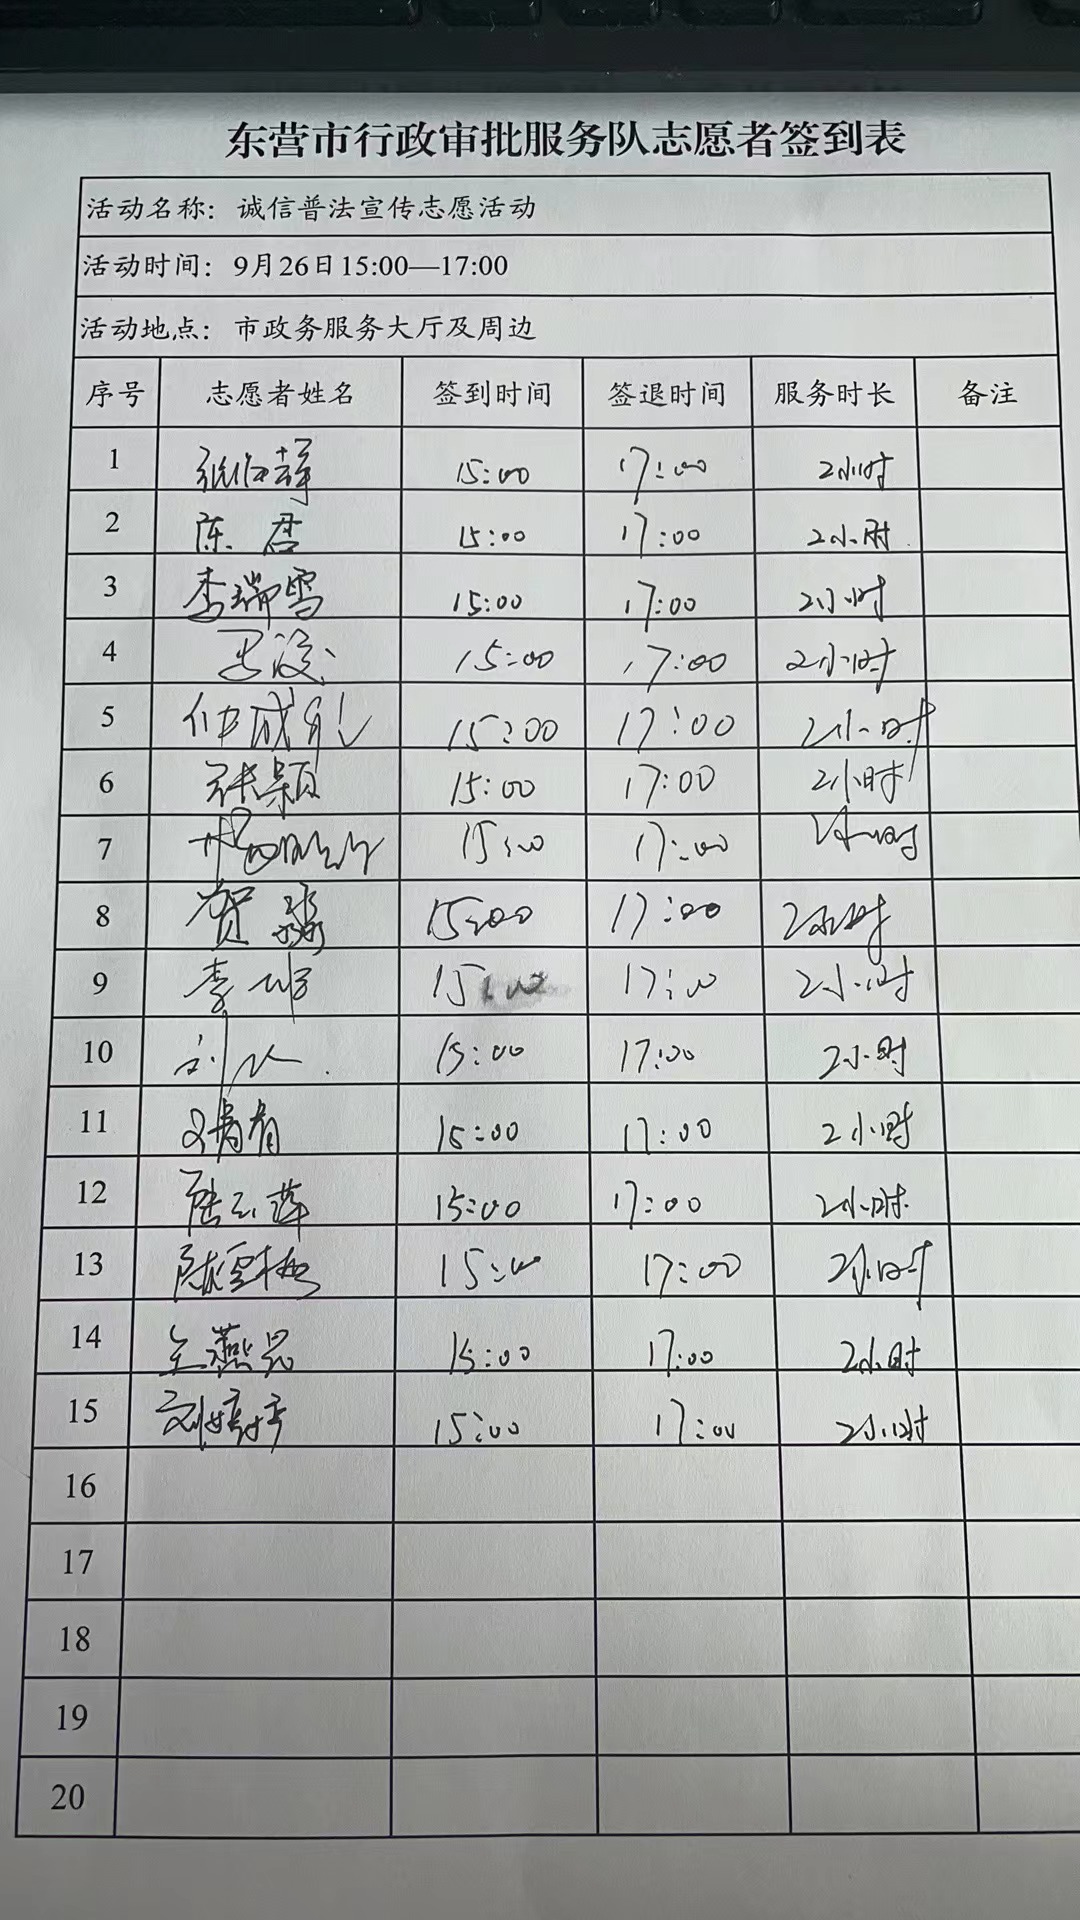 东营市行政审批服务队志愿者签到表
活动名称：诚信普法宣传志愿活动
活动时间：9月26日15:00—17:00
活动地点：市政务服务大厅及周边
序号 志愿者姓名 签到时间 签退时间 服务时长 备注
1 15:00 17:00 2小时
2 陈君 15:00 17:00 2小时
3 李瑞雪 15:00 17:00 2小时
4 15:00 17:00 2小时
5 15:00 17:00 2小时
6 张颖 15:00 17:00 2小时
7 15:00 17:00 2小时
8 贺淼 15:00 17:00 2小时
9 李娜 15:00 17:00 2小时
10 15:00 17:00 2小时
11 15:00 17:00 2小时
12 陆云萍 15:00 17:00 2小时
13 陈雪梅 15:00 17:00 2小时
14 王燕昆 15:00 17:00 2小时
15 刘婷婷 15:00 17:00 2小时
16
17
18
19
20